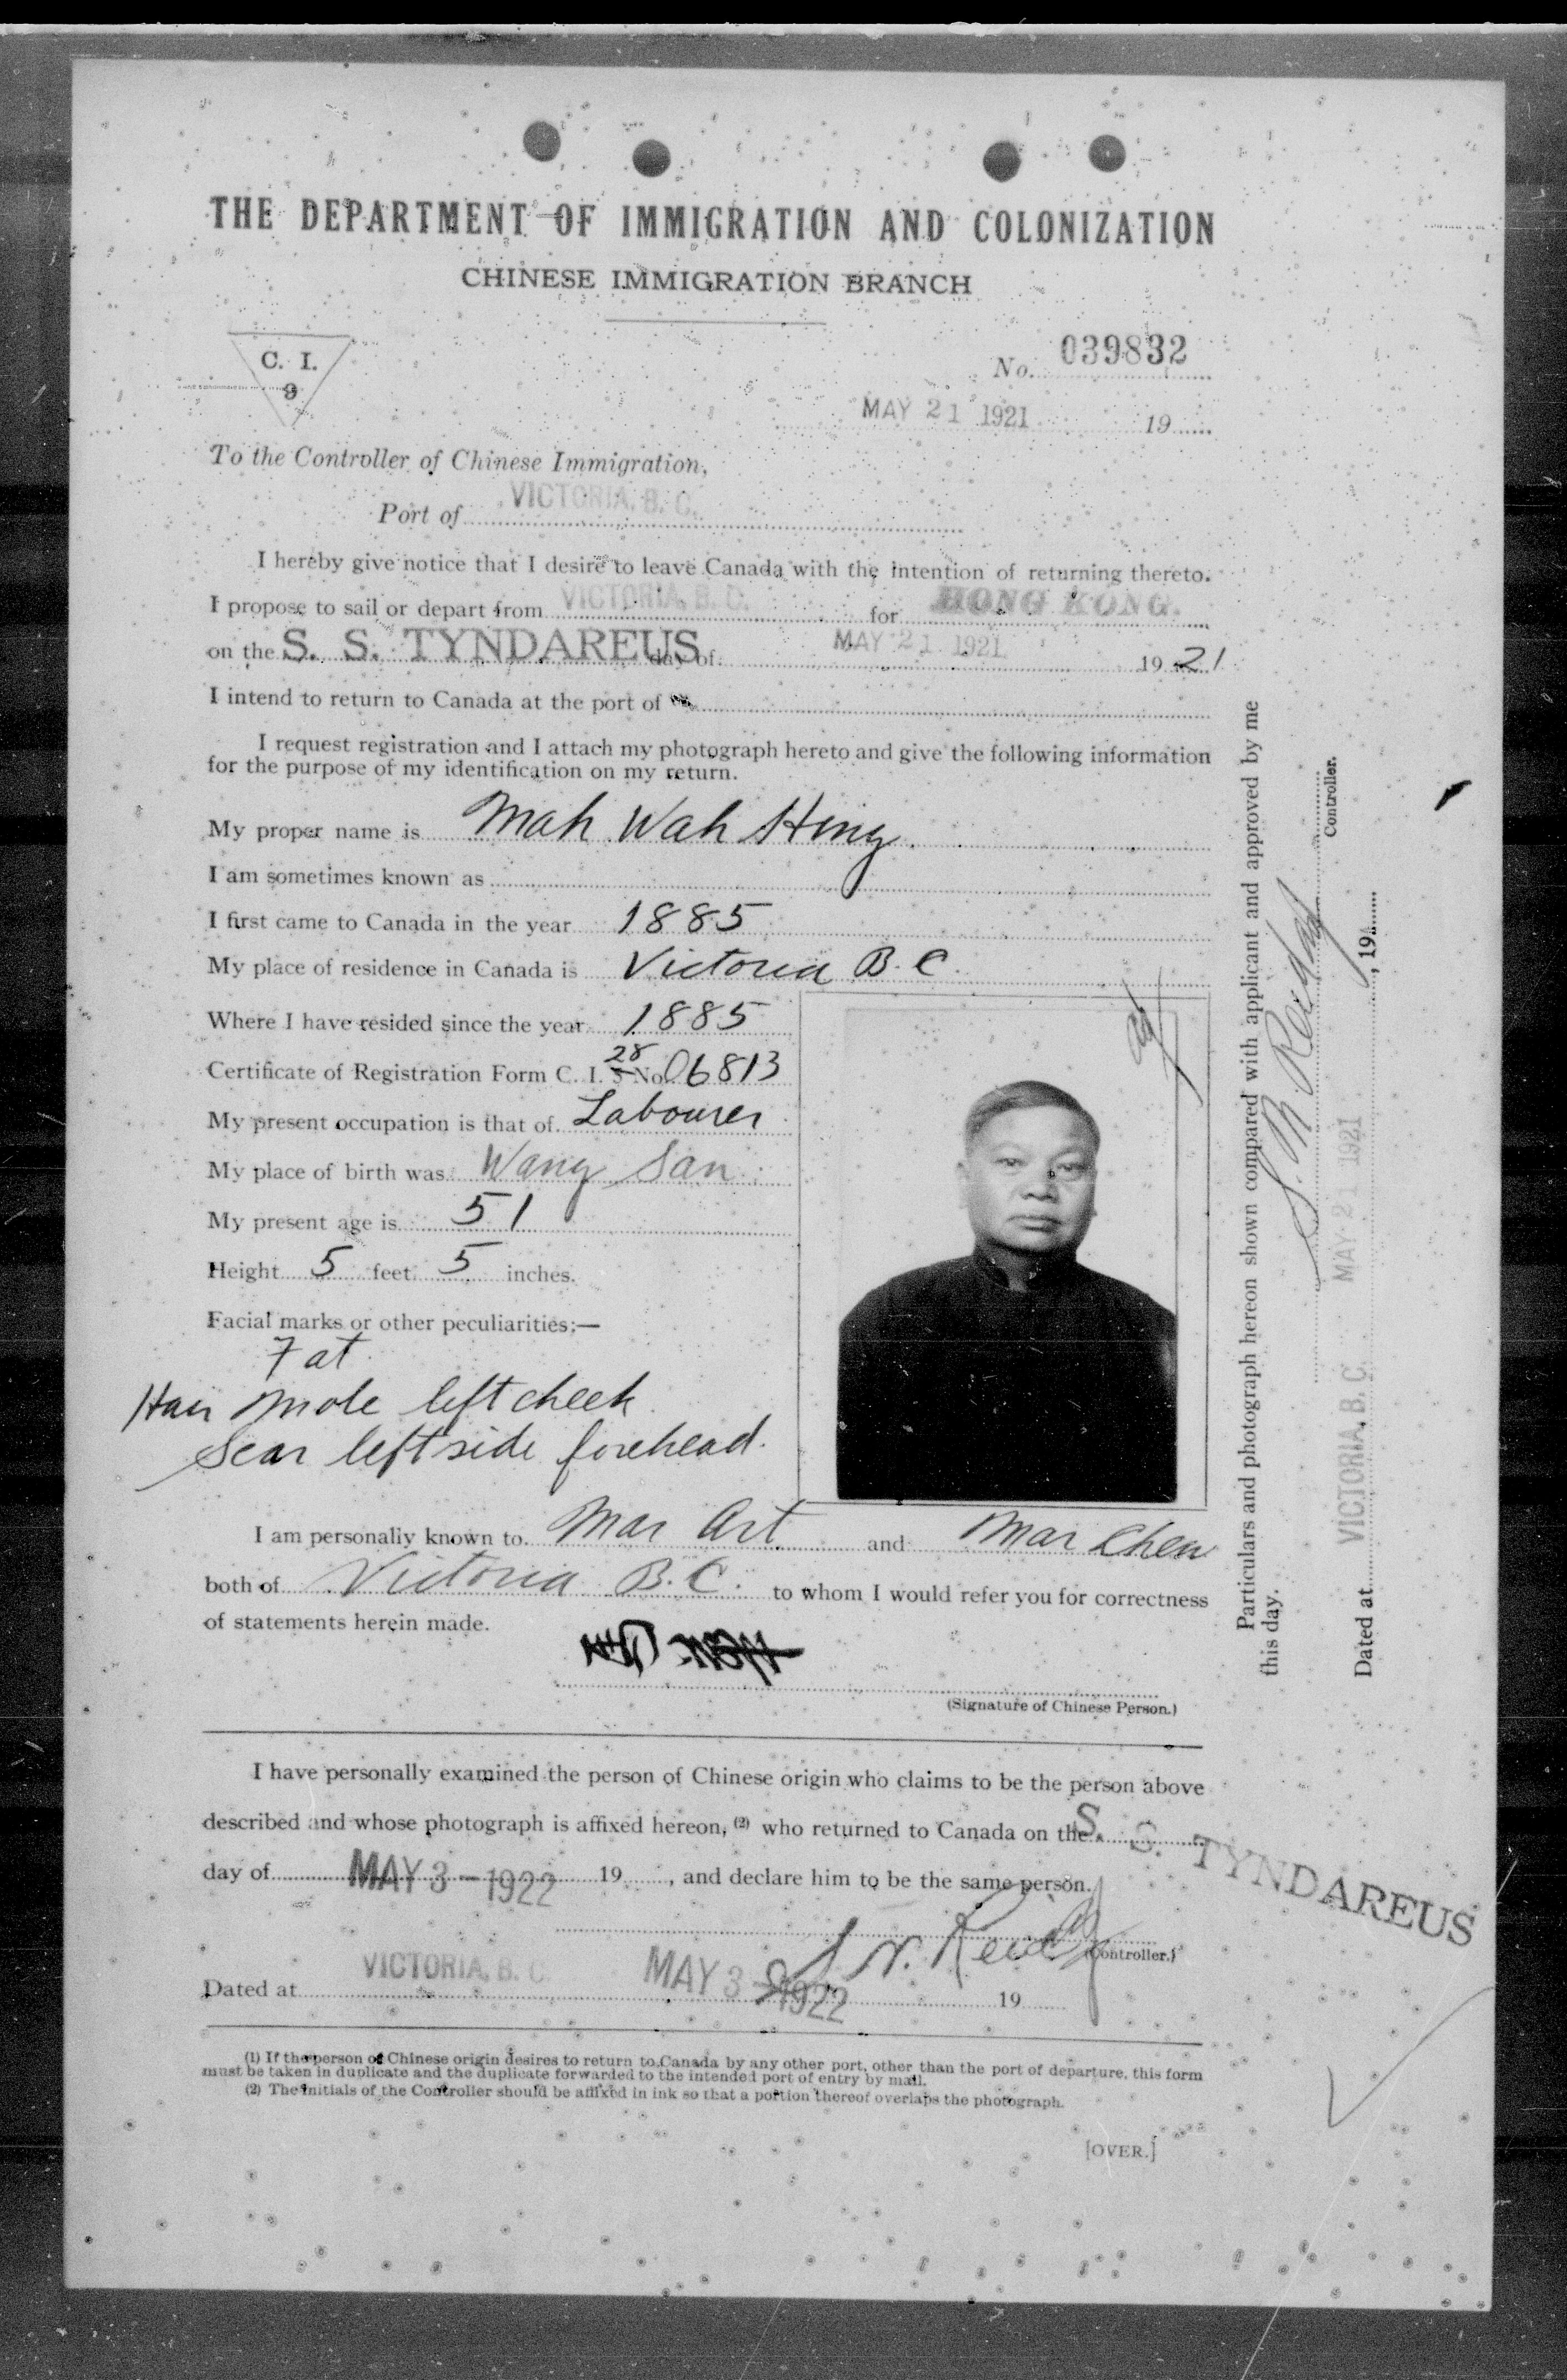 THE DEPARTMENT OF IMMIGRATION AND COLONIZATION
CHINESE IMMIGRATION BRANCH
C. I.
9
No. 039832
MAY 21 1921 19
To the Controller of Chinese Immigration,
Port of VICTORIA, B. C.
I hereby give notice that I desire to leave Canada with the intention of returning thereto.
I propose to sail or depart from VICTORIA, B. C. for HONG KONG.
on the S. S. TYNDAREUS day of MAY 21 1921 19 21
I intend to return to Canada at the port of
I request registration and I attach my photograph hereto and give the following information
for the purpose of my identification on my return.
My proper name is Mah Wah Hing.
I am sometimes known as
I first came to Canada in the year 1885
My place of residence in Canada is Victoria B. C.
Where I have resided since the year 1885
Certificate of Registration Form C. I. 5 28 No. 06813
My present occupation is that of Labourer
My place of birth was Wang San
My present age is 51
Height 5 feet 5 inches.
Facial marks or other peculiarities:—
Fat
Hair mole left cheek
Scar left side forehead.
I am personally known to Mar Art and Mar Chew
both of Victoria B. C. to whom I would refer you for correctness
of statements herein made.
(Signature of Chinese Person.)
I have personally examined the person of Chinese origin who claims to be the person above
described and whose photograph is affixed hereon, (2) who returned to Canada on the S. S. TYNDAREUS
day of MAY 3 - 1922 19 , and declare him to be the same person.
(Controller.)
Dated at VICTORIA, B. C. MAY 3 - 1922 19
(1) If the person of Chinese origin desires to return to Canada by any other port, other than the port of departure, this form
must be taken in duplicate and the duplicate forwarded to the intended port of entry by mail.
(2) The initials of the Controller should be affixed in ink so that a portion thereof overlaps the photograph.
[OVER.]
Particulars and photograph hereon shown compared with applicant and approved by me
this day.
Controller.
Dated at VICTORIA, B. C. MAY 21 1921 , 19